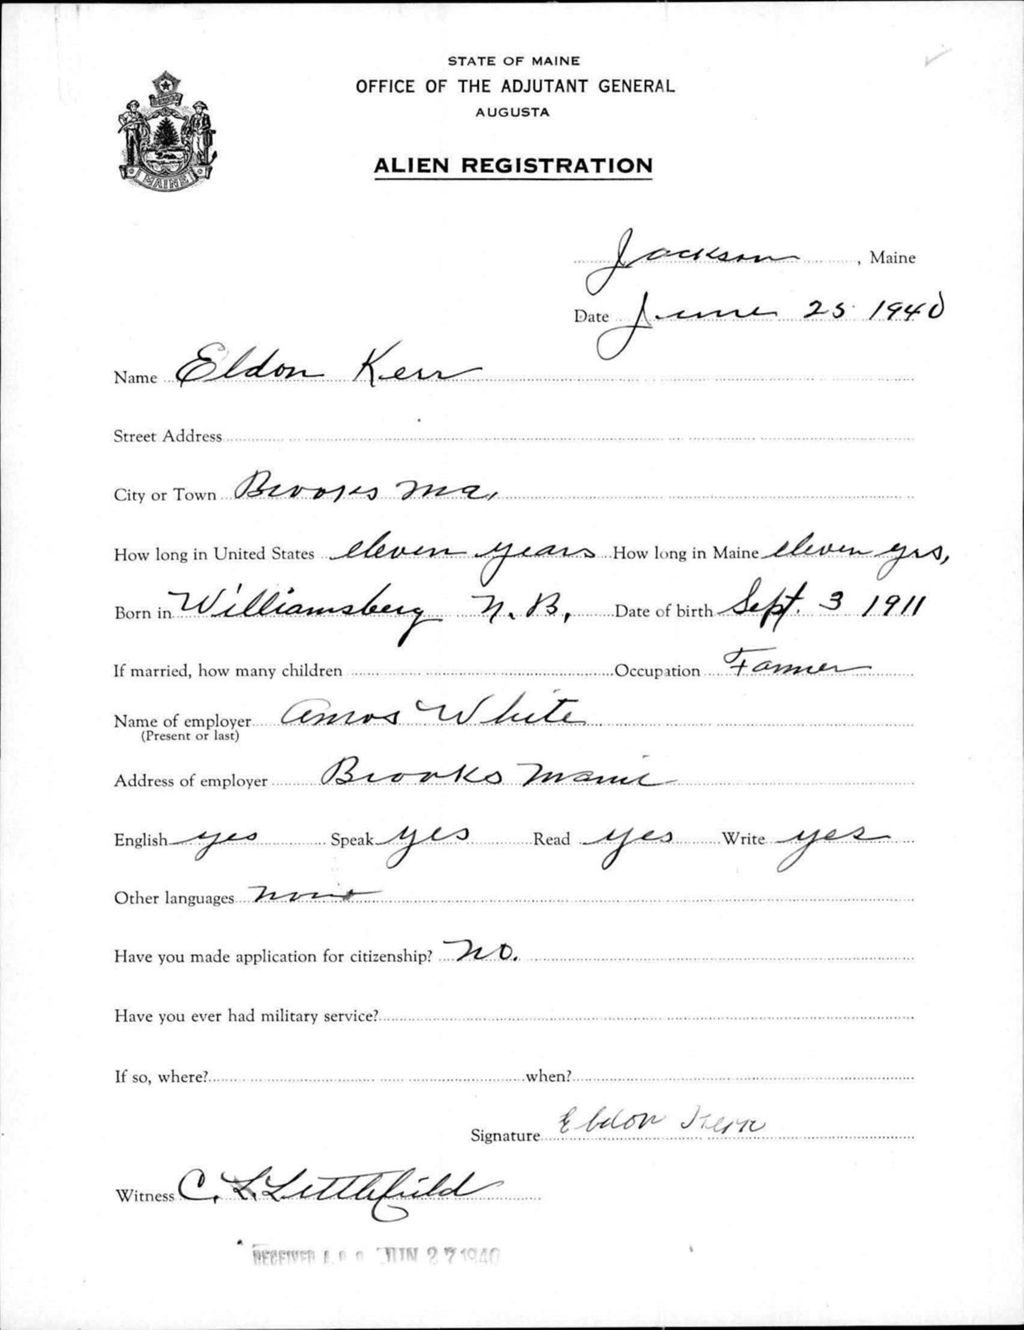 STATE OF MAINE
OFFICE OF THE ADJUTANT GENERAL
AUGUSTA
MAINE
ALIEN REGISTRATION
Jackson, Maine
Date June 25 1940
Name Eldon Kerr
Street Address
City or Town Brooks Me,
How long in United States eleven years How long in Maine eleven yrs,
Born in Williamsberg N. B. Date of birth Sept. 3 1911
If married, how many children Occupation Farmer
Name of employer Amos White
(Present or last)
Address of employer Brooks Maine
English yes Speak yes Read yes Write yes
Other languages none
Have you made application for citizenship? No.
Have you ever had military service?
If so, where? when?
Signature Eldon Kerr
Witness C. L. Littlefield
RECEIVED A. G. O. JUN 27 1940